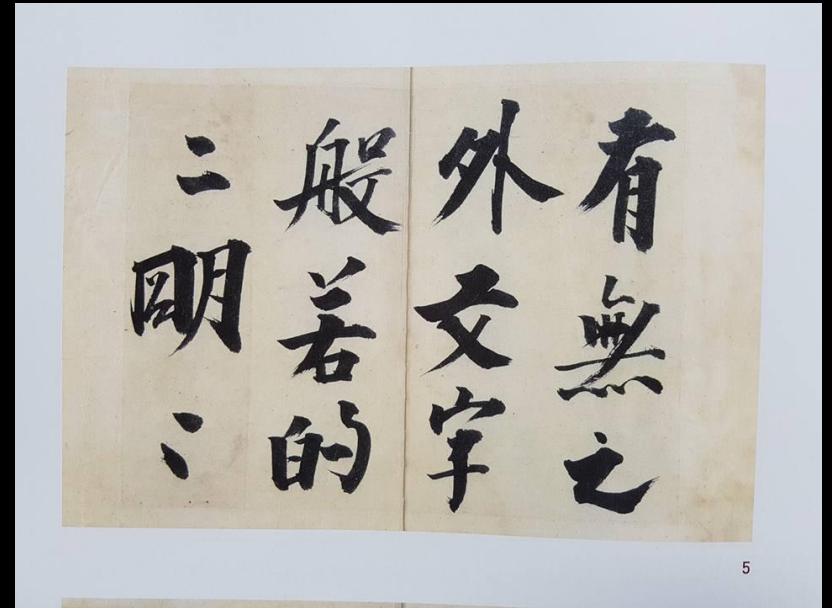 有無之
外文字
般若的
二明〻
5